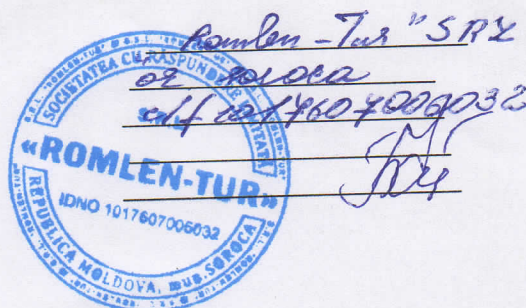 Romlen-Tur" SRL
or Soroca
c/f 1017607006032
SOCIETATEA CU RĂSPUNDERE LIMITATĂ
S.R.L.
«ROMLEN-TUR»
IDNO 1017607006032
REPUBLICA MOLDOVA, mun. SOROCA